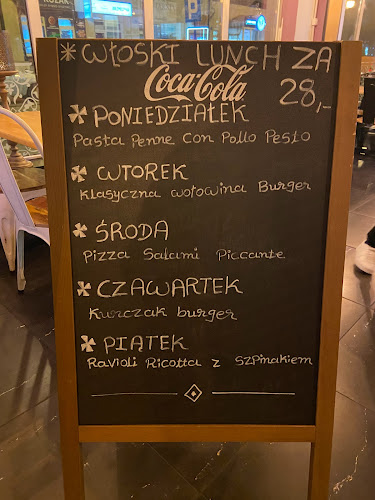 * WŁOSKI LUNCH ZA
Coca-Cola
28,-
PONIEDZIAŁEK
Pasta Penne con Pollo Pesto
WTOREK
Klasyczna wołowina Burger
ŚRODA
Pizza Salami Piccante
CZAWARTEK
Kurczak burger
PIĄTEK
Ravioli Ricotta z SzPinakiem